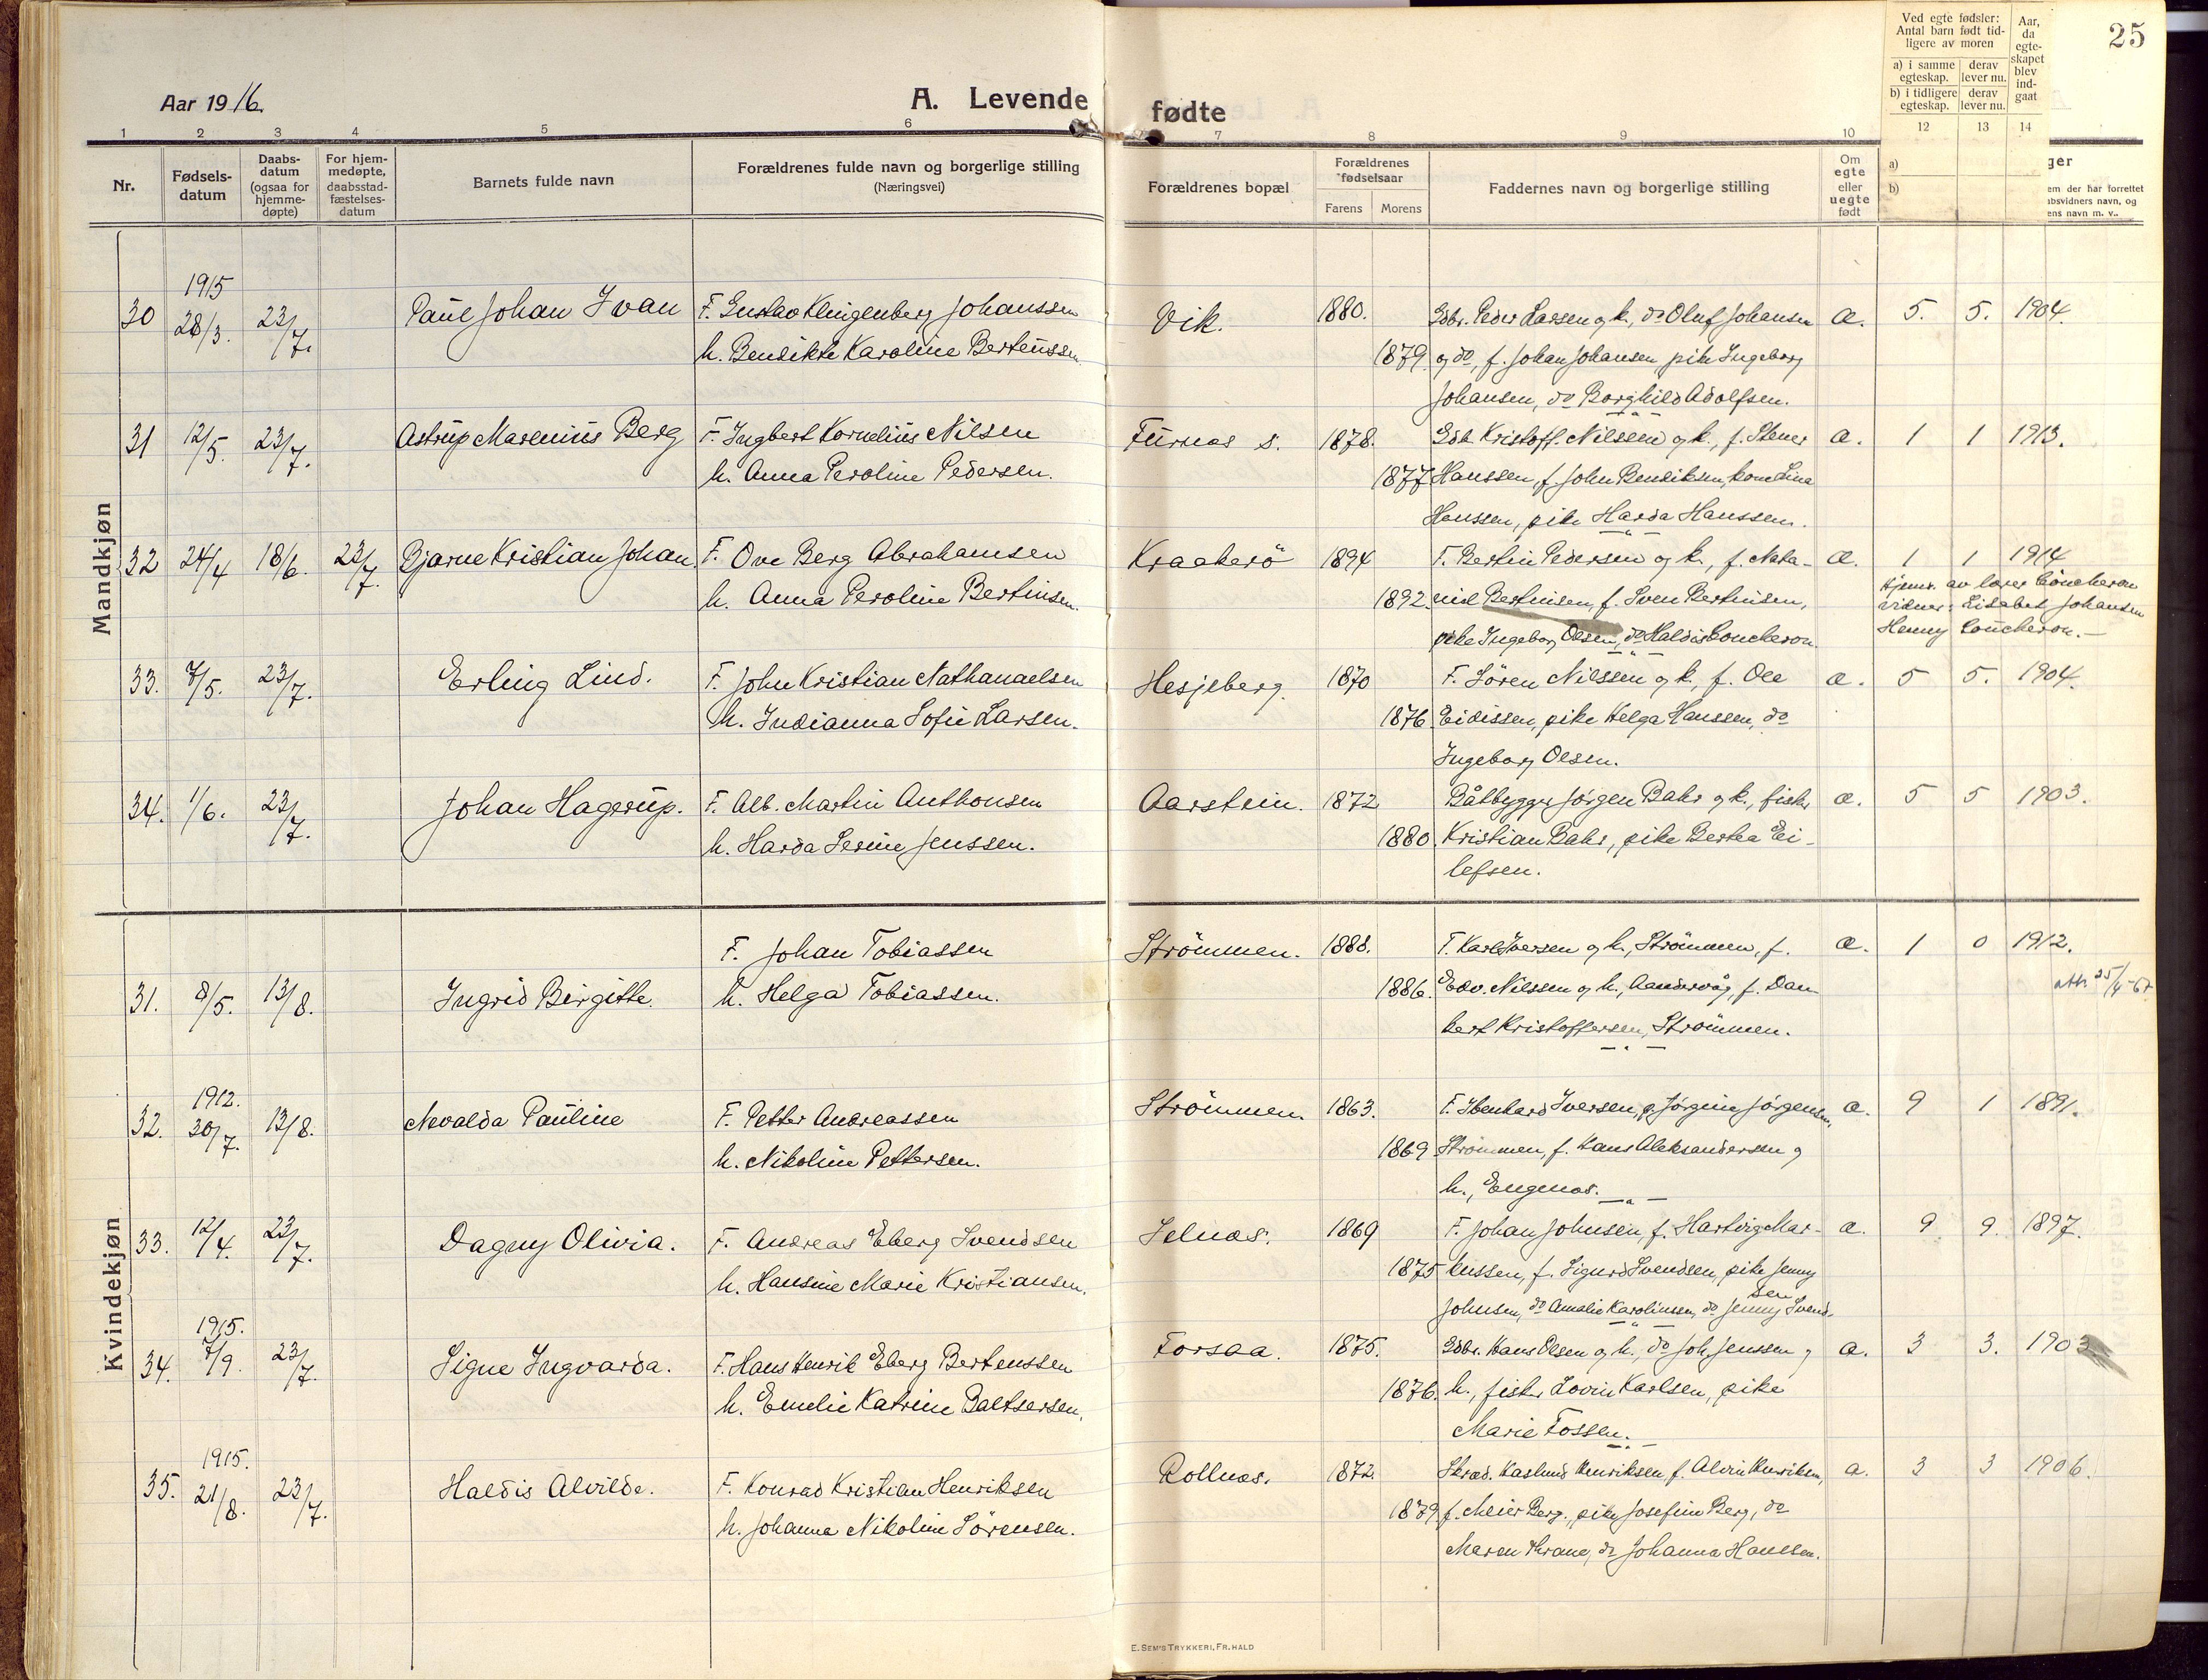 25
Aar 1916.
A. Levende fødte
Ved egte fødsler: Antal barn født tidligere av moren
a) i samme egteskap. derav lever nu.
b) i tidligere egteskap. derav lever nu.
Aar, da egteskapet blev indgaat
1 2 3 4 5 6 7 8 9 10 12 13 14
Nr.
Fødselsdatum
Daabsdatum (ogsaa for hjemmedøpte)
For hjemmedøpte, daabsstadfæstelsesdatum
Barnets fulde navn
Forældrenes fulde navn og borgerlige stilling (Næringsvei)
Forældrenes bopæl
Forældrenes fødselsaar
Farens Morens
Faddernes navn og borgerlige stilling
Om egte eller uegte født
a)
b)
ger
em der har forrettet
absvidners navn, og
ens navn m. v..
Mandkjøn
1915
30 28/3. 23/7. Paul Johan Ivan F. Gustav Klingenberg Johanssen Vik. 1880. Gdbr. Peder Larsen og k., do Oluf Johansen a. 5. 5. 1904.
h. Bendikte Karoline Berteussen 1879. og do, f. Johan Johansen, pike Ingeborg
Johansen, do Borghild Adolfsen.
31 12/5. 23/7. Astrup Marenius Berg F. Ingbert Kornelius Nilsen Furnes s. 1878. Gdb. Kristoff. Nilssen og k., f. Stener a. 1 1 1913.
h. Anna Peroline Pedersen. 1877 Hanssen, f. John Bendiksen, kone Lina
Hanssen, pike Harda Hanssen.
32 24/4 18/6. 23/7. Bjarne Kristian Johan. F. Ove Berg Abrahamsen Kraakerö 1894 F. Bertin Pedersen og k., f. Nata- a. 1 1 1914
h. Anna Peroline Bertinsen. 1892. niel Bertinsen, f. Sven Bertinsen,
pike Ingeborg Olsen, do Haldis Coucheron.
Hjemr. av lærer Coucheron
vidner: Lisabet Johansen
Henny Coucheron.
33. 7/5. 23/7. Erling Lind. F. John Kristian Nathanaelsen Hesjeberg. 1870 F. Sören Nilssen og k., f. Ole a. 5 5. 1904.
h. Indianna Sofie Larsen. 1876. Eidissen, pike Helga Hanssen, do
Ingeborg Olsen.
34. 1/6. 23/7. Johan Hagerup. F. Alb. Martin Anthonsen Aarstein. 1872 Båtbygger Jörgen Bahr og k., fisker a. 5 5 1903.
h. Harda Serine Jenssen. 1880. Kristian Bahr, pike Bertea Ei-
lefsen.
Kvindekjøn
31. 8/5. 13/8. Ingrid Birgitte. F. Johan Tobiassen Strömmen. 1888. F. Karl Iversen og h., Strömmen, f. a. 1 0 1912.
h. Helga Tobiassen. 1886. Edv. Nilssen og h., Aandervåg, f. Dan-
bert Kristoffersen, Strömmen.
att. 25/4-67
1912.
32. 30/7. 13/8. Nevalda Pauline F. Petter Andreassen Strömmen. 1863. F. Ibenhard Iversen, p. Jörgine Jörgensen, a. 9 1 1891.
h. Nikoline Pettersen. 1869. Strömmen, f. Hans Aleksandersen og
h., Engenes.
33. 12/4. 23/7. Dagny Olivia. F. Andreas Eberg Svendsen Selnes. 1869 F. Johan Johnsen, f. Hartvig Mar- a. 9 9. 1897.
h. Hansine Marie Kristiansen. 1875 kussen, f. Sigurd Svendsen, pike Jenny
Johnsen, do Amalie Karolinssen, do Jenny Svendsen
1915.
34. 7/9. 23/7. Signe Ingvarda. F. Hans Henrik Eberg Bertenssen Forsaa. 1875. Gdbr. Hans Olsen og h., do Joh. Jenssen og a. 3 3. 1903
h. Emelie Katrine Baltsersen. 1876. h., fisker Lovin Karlsen, pike
Marie Fossen.
1915.
35. 21/8. 23/7. Haldis Alvilde. F. Konrad Kristian Henriksen Rollnes. 1872. Skræd. Kaslund Henriksen, f. Alvin Henriksen, a. 3 3 1906.
h. Johanna Nikoline Sörensen. 1879 f. Meier Berg, pike Josefine Berg, do
Maren Krane, do Johanna Hansen.
E. SEM'S TRYKKERI, FR. HALD